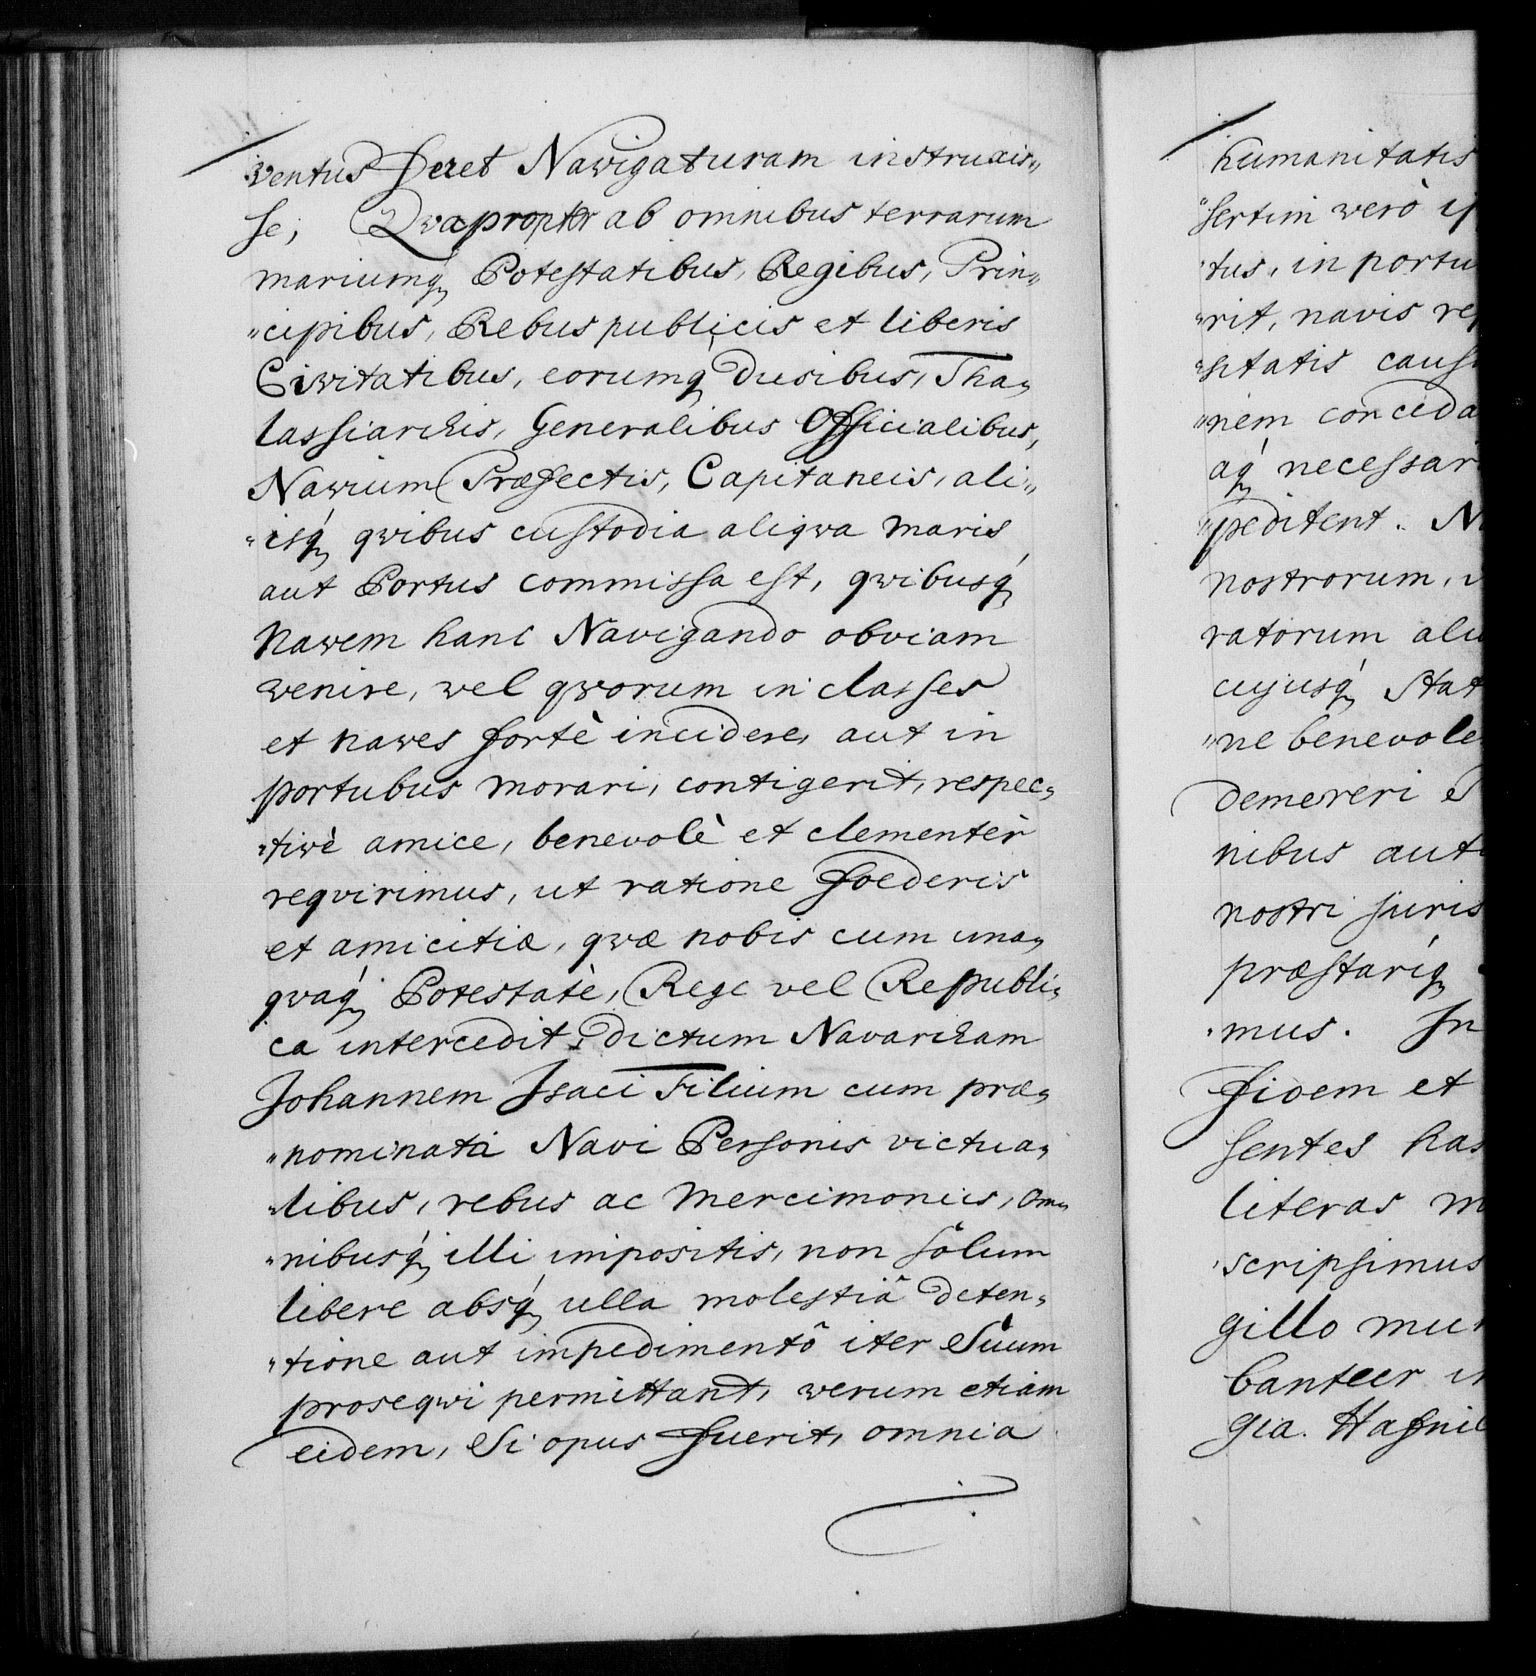 ventus feret Nawigaturam instruxis„
se; Qwapropter ab omnibus terrarum
mariumq́; Potestatibus, Regibus, Prin„
„cipibus, Rebuspublicis et liberis
Ciwitatibus, eorumq́; Ducibus, Tha„
lassiarchis, Generalibus Officialibus,
Nawium Præfectis, Capitaneis, ali„
„isq́; qwibus custodia aliqwa maris
aut Portus commissa est, qwibusq́;
Nawem hanc Navigando obviam
wenire, wel qworum in classes
et nawes fortè incidere, aut in
portubus morari, contigerit, respec„
„tiwè amice, benevolè et clementèr
reqvirimus, ut ratione foederis
et amicitiæ, qwæ nobis cum una„
qvaq́; Potestatè, Rege vel Republi„
ca intercedit, dictum Navarcham
Johannem Isaci Filium cum præ„
„nominata Navi Personis victua„
„libus, rebus ac mercimoniis, om„
„nibusq́; illi impositis, non sôlum
libere absq́; ulla molestiâ deten„
„tione aut impedimentô iter Suum
proseqwi permittant, werum etiam
eidem, Si opus fuerit, omnia
humanitatis
„sertim werò
tus, in portu
„rit, navis
„sitatis
„nem conceda
aq́;
„peditent.
nostrorum,
ratorum
cujusq́;
„ne
demereri
nibus
nostri juris
præstariq́;
„mus. In
fidem et
sentes has
literas
scripsimus
gillo
banteer
gia.